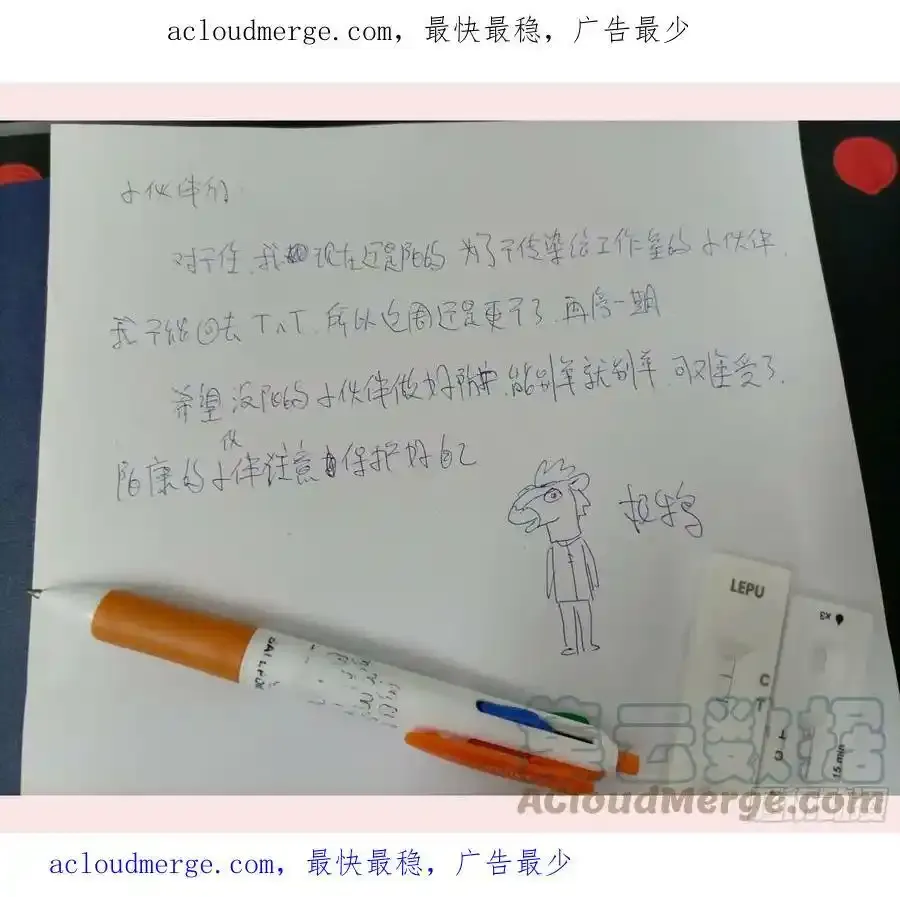 acloudmerge.com，最快最稳，广告最少
小伙伴们
对不住，我现在还是阳的 为了不传染给工作室的小伙伴，
我不能回去TAT，所以这周还是更不了，再停一期
希望没阳的小伙伴做好防护，能别羊就别羊，可难受了，
阳康的小伙伴注意保护好自己
LEPU
C
T
15 min
集云数据
ACloudMerge.com
acloudmerge.com，最快最稳，广告最少